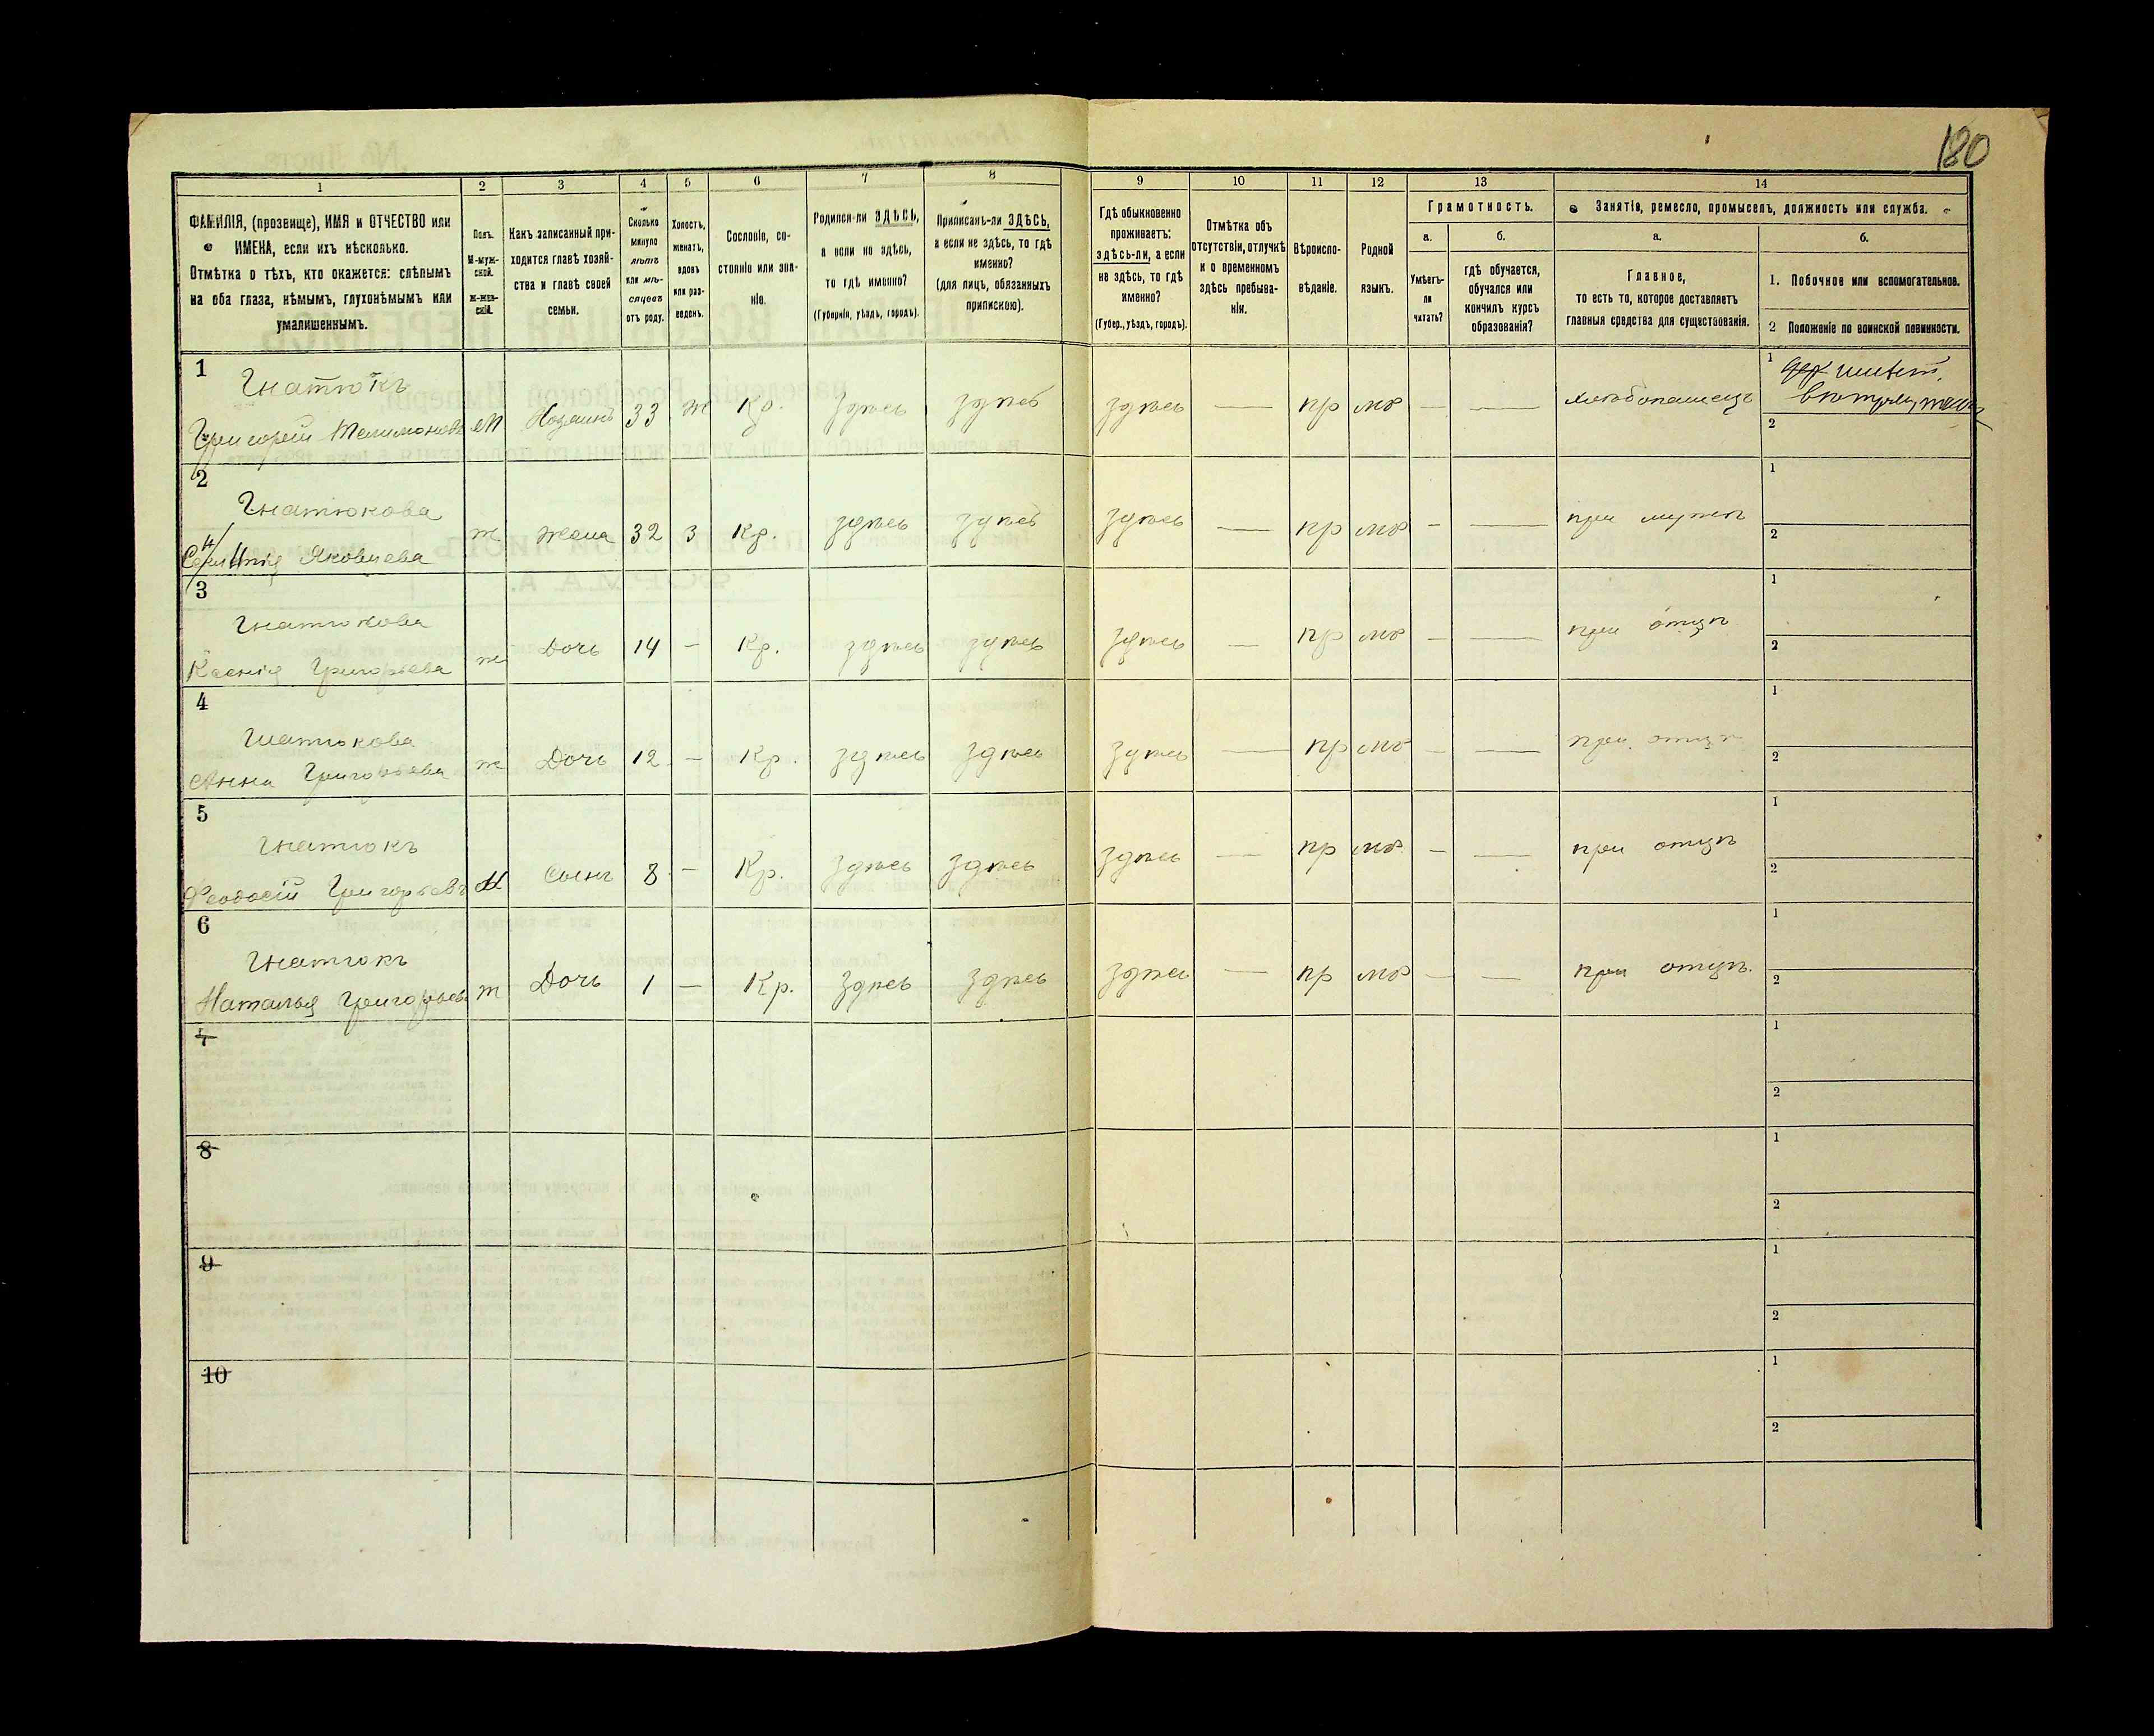 180
1 2 3 4 5 6 7 8 9 10 11 12 13 14
ФАМИЛІЯ, (прозвище), ИМЯ и ОТЧЕСТВО или
ИМЕНА, если ихъ нѣсколько.
Отмѣтка о тѣхъ, кто окажется: слѣпымъ
на оба глаза, нѣмымъ, глухонѣмымъ или
умалишеннымъ.
Полъ.
М-муж-
ской.
Ж-жен-
скій.
Какъ записанный при-
ходится главѣ хозяй-
ства и главѣ своей
семьи.
Сколько
минуло
лѣтъ
или мѣ-
сяцевъ
отъ роду.
Холостъ,
женатъ,
вдовъ
или раз-
веденъ.
Сословіе, со-
стояніе или зва-
ніе.
Родился-ли ЗДѢСЬ,
а если не здѣсь,
то гдѣ именно?
(Губернія, уѣздъ, городъ).
Приписанъ-ли ЗДѢСЬ,
а если не здѣсь, то гдѣ
именно?
(для лицъ, обязанныхъ
припискою).
Гдѣ обыкновенно
проживаетъ:
здѣсь-ли, а если
не здѣсь, то гдѣ
именно?
(Губер., уѣздъ, городъ).
Отмѣтка объ
отсутствіи, отлучкѣ
и о временномъ
здѣсь пребыва-
ніи.
Вѣроиспо-
вѣданіе.
Родной
языкъ.
Грамотность.
а.
Умѣетъ-
ли
читать?
б.
гдѣ обучается,
обучался или
кончилъ курсъ
образованія?
Занятіе, ремесло, промыселъ, должность или служба.
а.
Главное,
то есть то, которое доставляетъ
главныя средства для существованія.
б.
1. Побочное или вспомогательное.
2 Положеніе по воинской повинности.
1
Гнатюкъ
Григорій м Хозяинъ 33 ж Кр. здѣсь здѣсь здѣсь — пр мр — — хлѣбопашецъ 1
2
2
Гнатюкова
Яковлева ж жена 32 з Кр. здѣсь здѣсь здѣсь — пр мр — — при мужѣ 1
2
3
Гнатюкова
Ксенія Григорьева ж Дочь 14 — Кр. здѣсь здѣсь здѣсь — пр мр — — при отцѣ 1
2
4
Гнатюкова
Анна Григорьева ж Дочь 12 — Кр. здѣсь здѣсь здѣсь — пр мр — — при отцѣ 1
2
5
Гнатюкъ
Феодосій Григорьевъ М Сынъ 8 — Кр. здѣсь здѣсь здѣсь — пр мр — — при отцѣ 1
2
6
Гнатюкъ
Наталья Григорьев ж Дочь 1 — Кр. здѣсь здѣсь здѣсь — пр мр — — при отцѣ 1
2
7 1
2
8 1
2
9 1
2
10 1
2